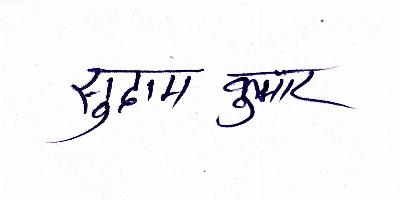 सुदाम कुमार